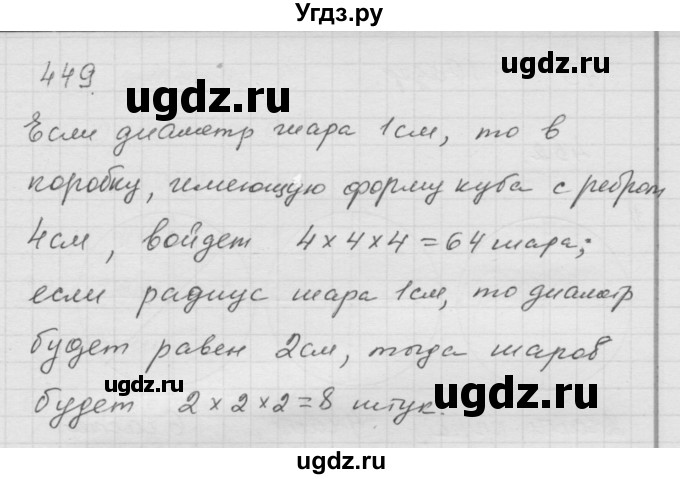 Угдз.ру
449.
Если диаметр шара 1см, то в
коробку, имеющую форму куба с ребром
4см, войдет 4×4×4=64 шара;
если радиус шара 1см, то диаметр
будет равен 2см, тогда шаров
будет 2×2×2=8 штук.
ugdz.ru
ugdz.ru
ugdz.ru
ugdz.ru
ugdz.ru
ugdz.ru
ugdz.ru
ugdz.ru